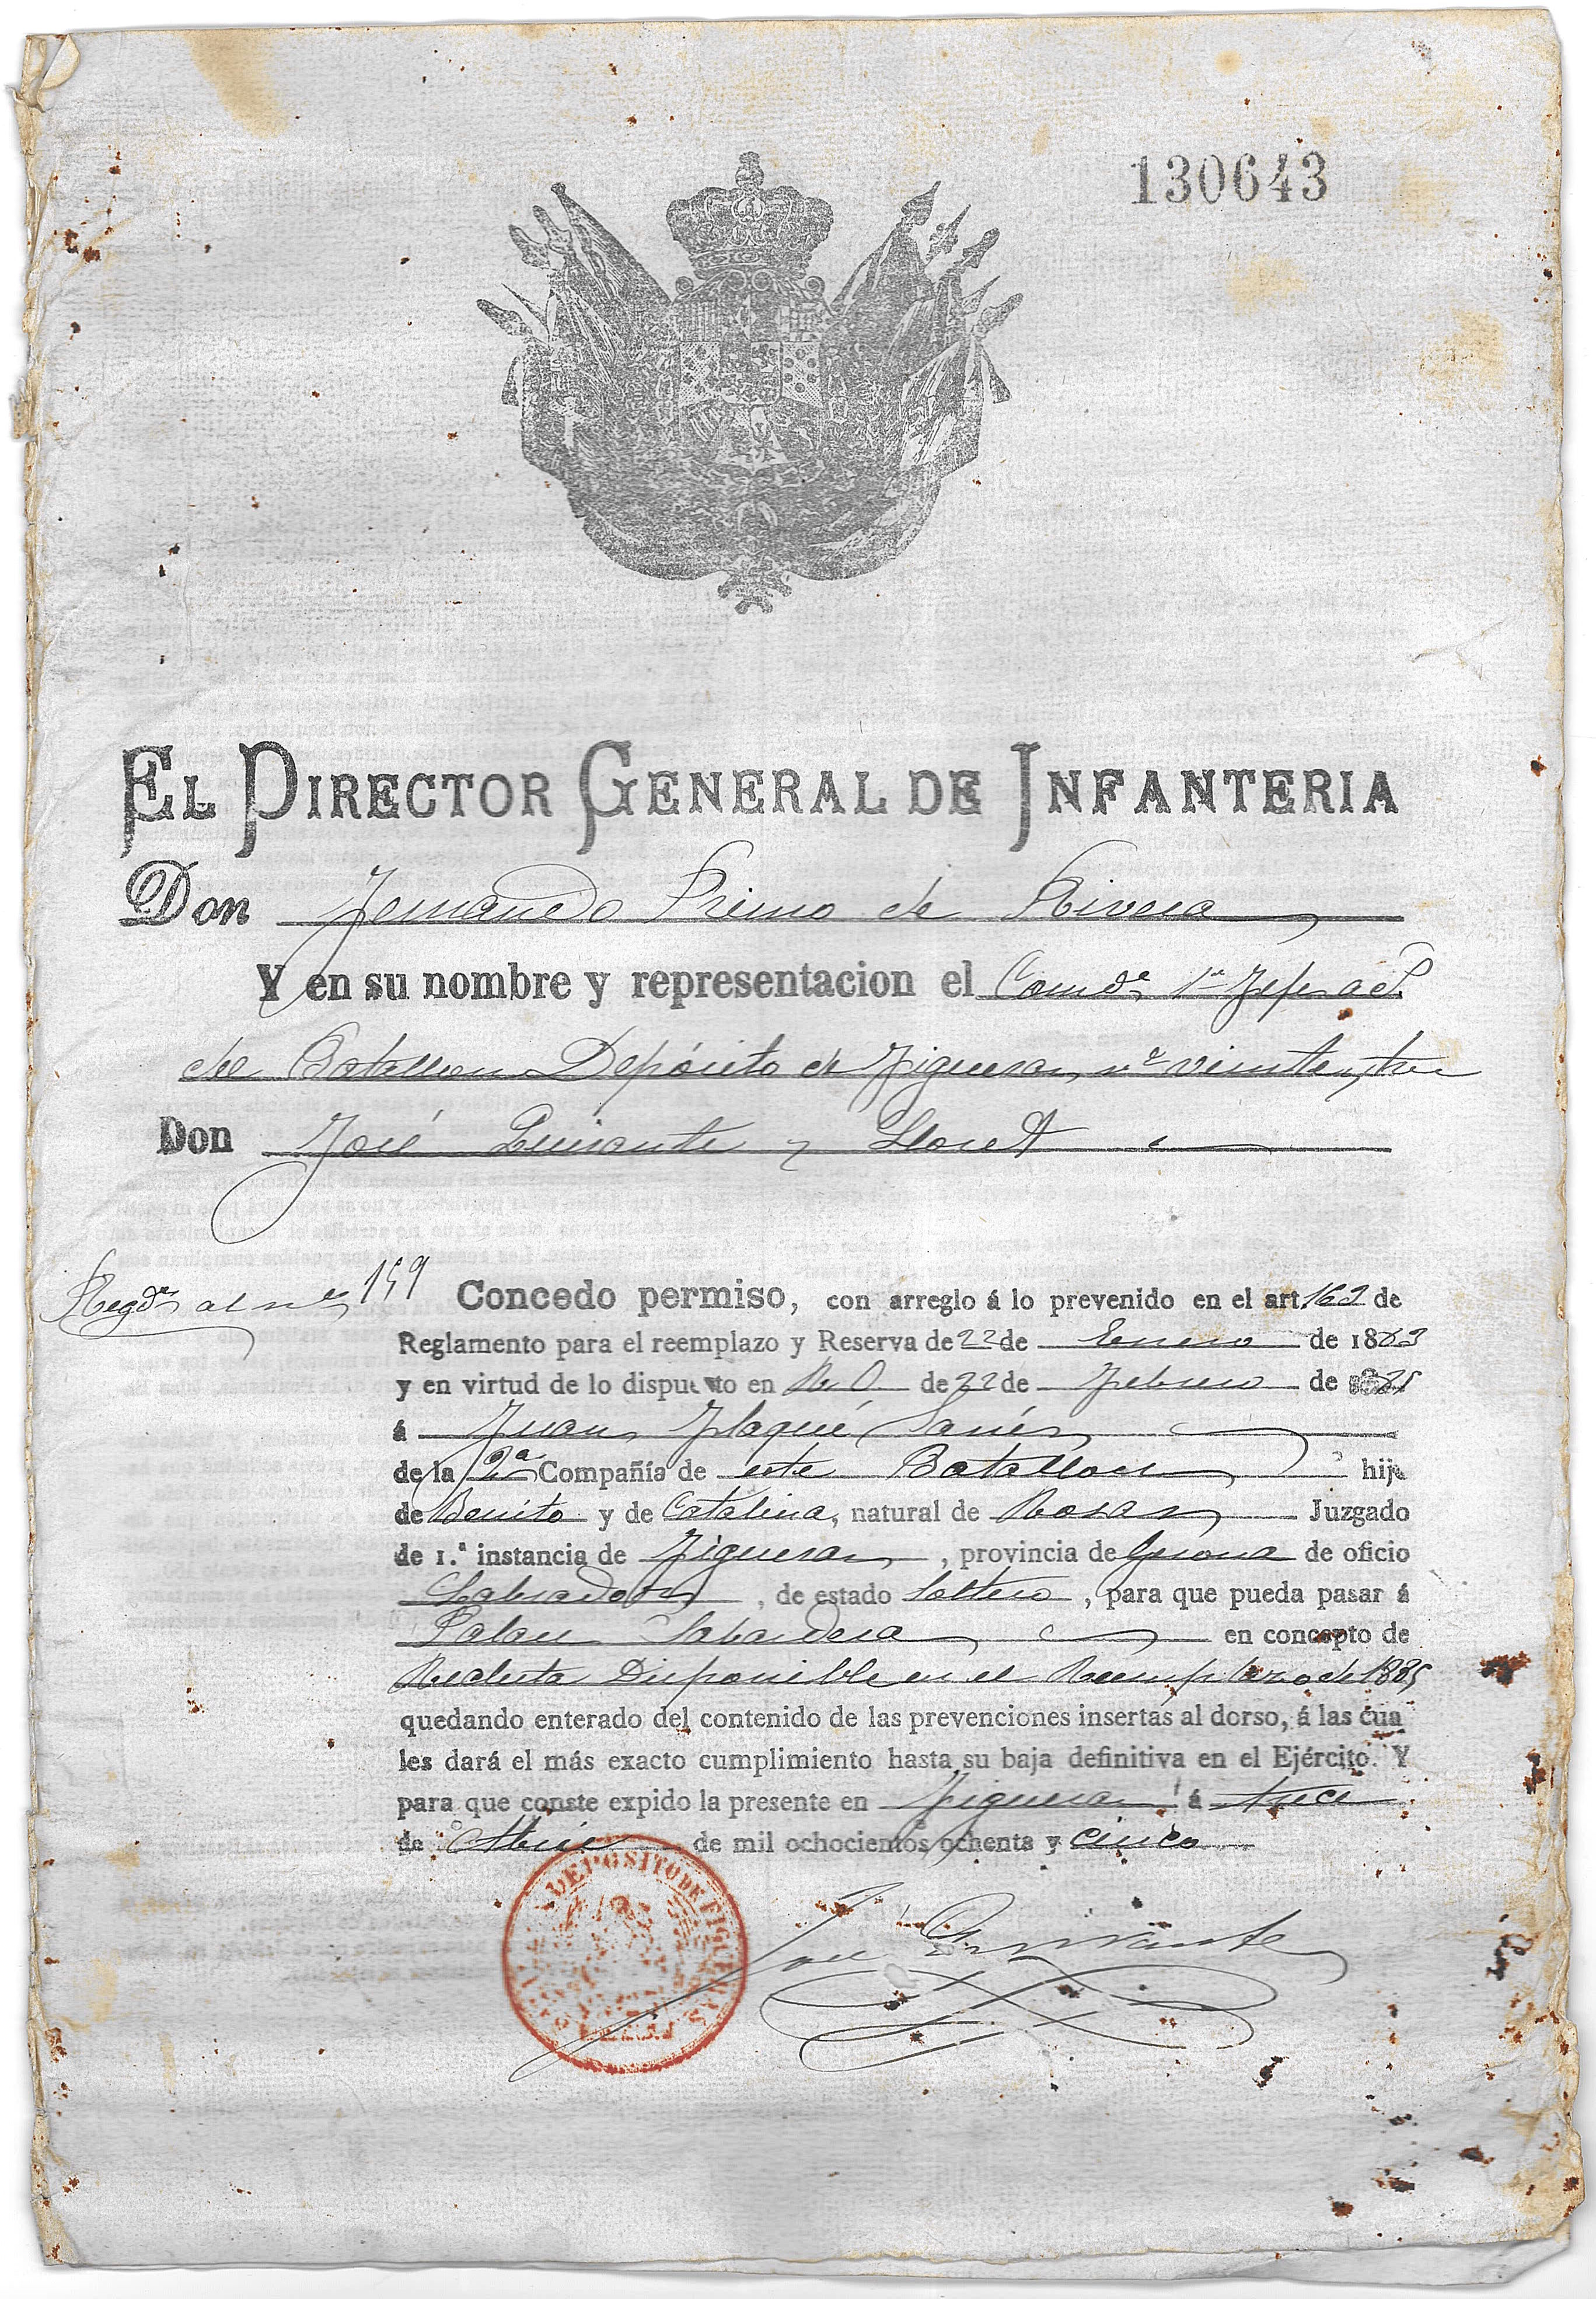 130643
EL DIRECTOR GENERAL DE INFANTERIA
Don Fernando Primo de Rivera
Y en su nombre y representacion el Comdte 1er Jefe
del Batallon Depósito de Figueras, nº veintey tres
Don José y Lloret
Regdo al nº 159
Concedo permiso, con arreglo á lo prevenido en el art. 162 de
Reglamento para el reemplazo y Reserva de 22 de Enero de 1883
y en virtud de lo dispuesto en R. O. de 22 de Febrero de 1885
á Juan Flaqué
de la 2ª Compañía de este Batallon hijo
de Benito y de Catalina, natural de Rosas Juzgado
de 1.ª instancia de Figueras, provincia de Gerona de oficio
Labrador, de estado soltero, para que pueda pasar á
Palau Sabardera en concepto de
Recluta Disponible en el Reemplazo de 1885
quedando enterado del contenido de las prevenciones insertas al dorso, á las cua
les dará el más exacto cumplimiento hasta su baja definitiva en el Ejército. Y
para que conste expido la presente en Figueras á trece
de Abril de mil ochocientos ochenta y cinco
DEPÓSITO DE FIGUERAS
José